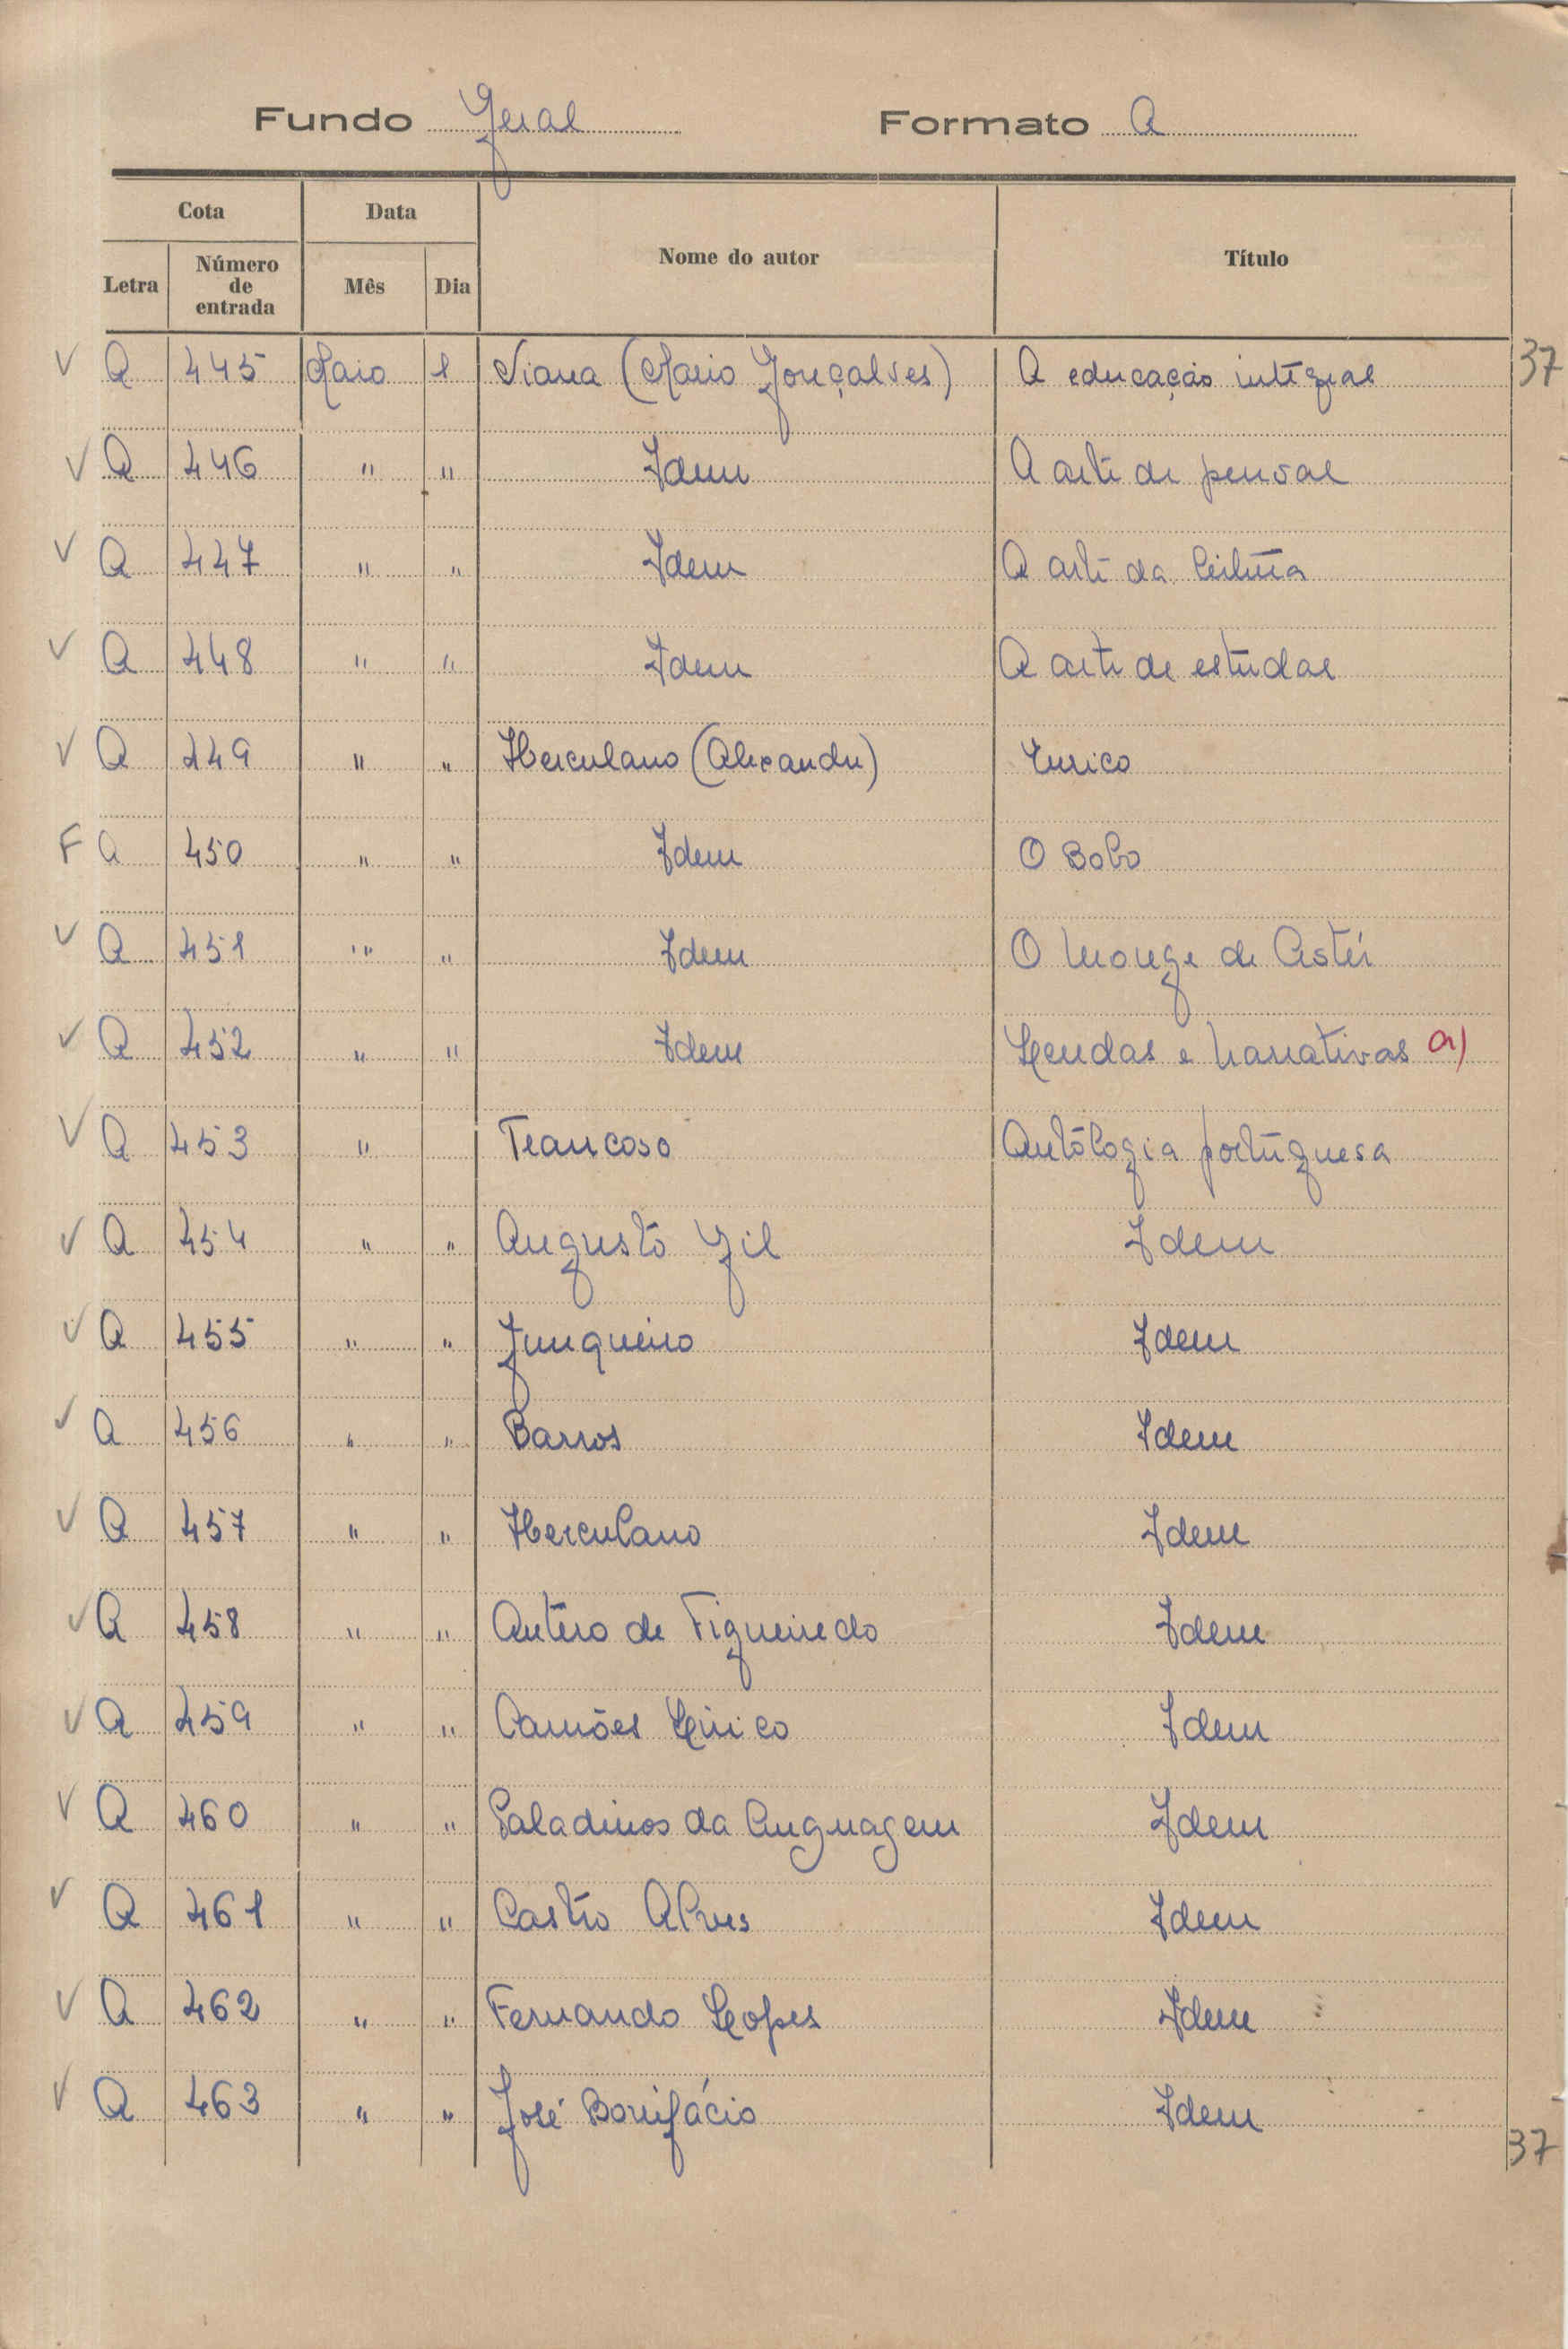 Fundo Geral Formato A
Cota Data Nome do autor Título
Letra Número de entrada Mês Dia
V A 445 Maio 1 Viana (Mario Gonçalves) A educação integral 37
V A 446 " " Idem A arte de pensar
V A 447 " " Idem A arte da leitura
V A 448 " " Idem A arte de estudar
V A 449 " " Herculano (Alexandre) Eurico
F A 450 " " Idem O Bobo
V A 451 " " Idem O Monge de Cister
V A 452 " " Idem Lendas e Narrativas a)
V A 453 " Trancoso Antologia portuguesa
V A 454 " " Augusto Gil Idem
V A 455 " " Junqueiro Idem
V A 456 " " Barros Idem
V A 457 " " Herculano Idem
V A 458 " " Antero de Figueiredo Idem
V A 459 " " Camões Lírico Idem
V A 460 " " Paladinos da linguagem Idem
V A 461 " " Castro Alves Idem
V A 462 " " Fernando Lopes Idem
V A 463 " " José Bonifácio Idem
37